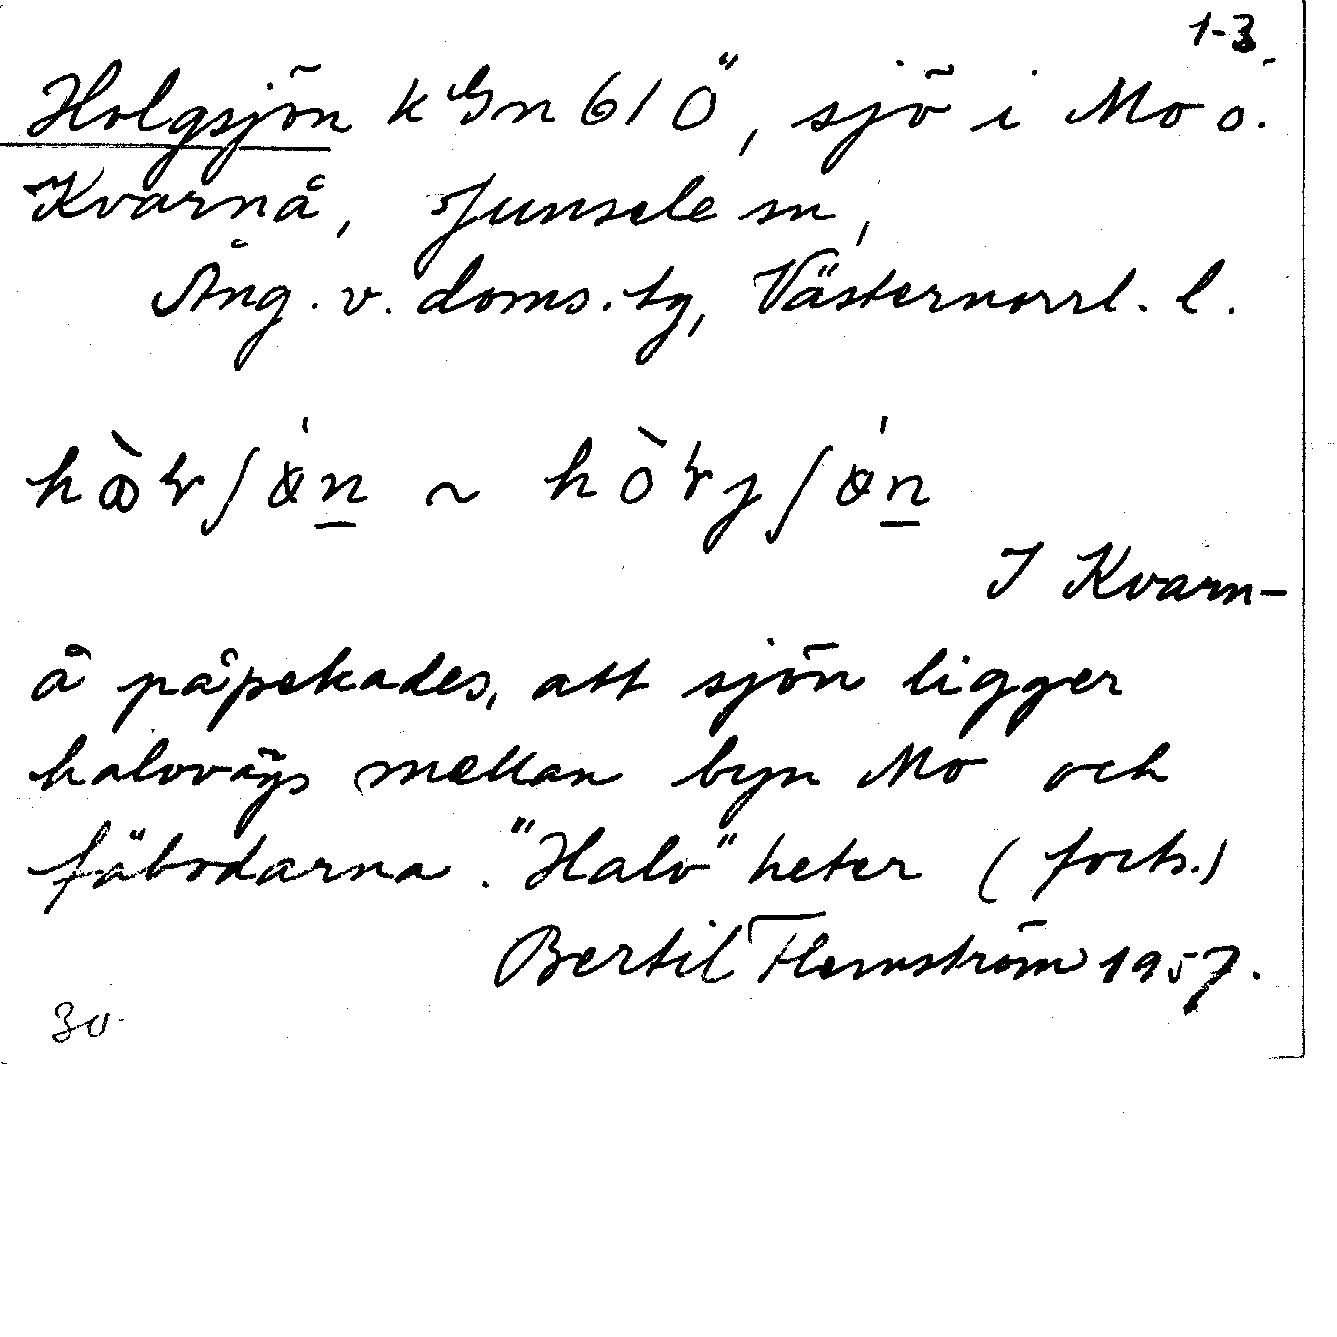 1-3
Holgsjön k Gn 61 Ö, sjö i Mo o.
Kvarnå, Junsele sn,
Ång. v. doms. tg, Västernorrl. l.
I Kvarn-
å påpekades, att sjön ligger
halvvägs mellan byn Mo och
fäbodarna. "Halv" heter (forts.)
Bertil Flemström 1957.
30